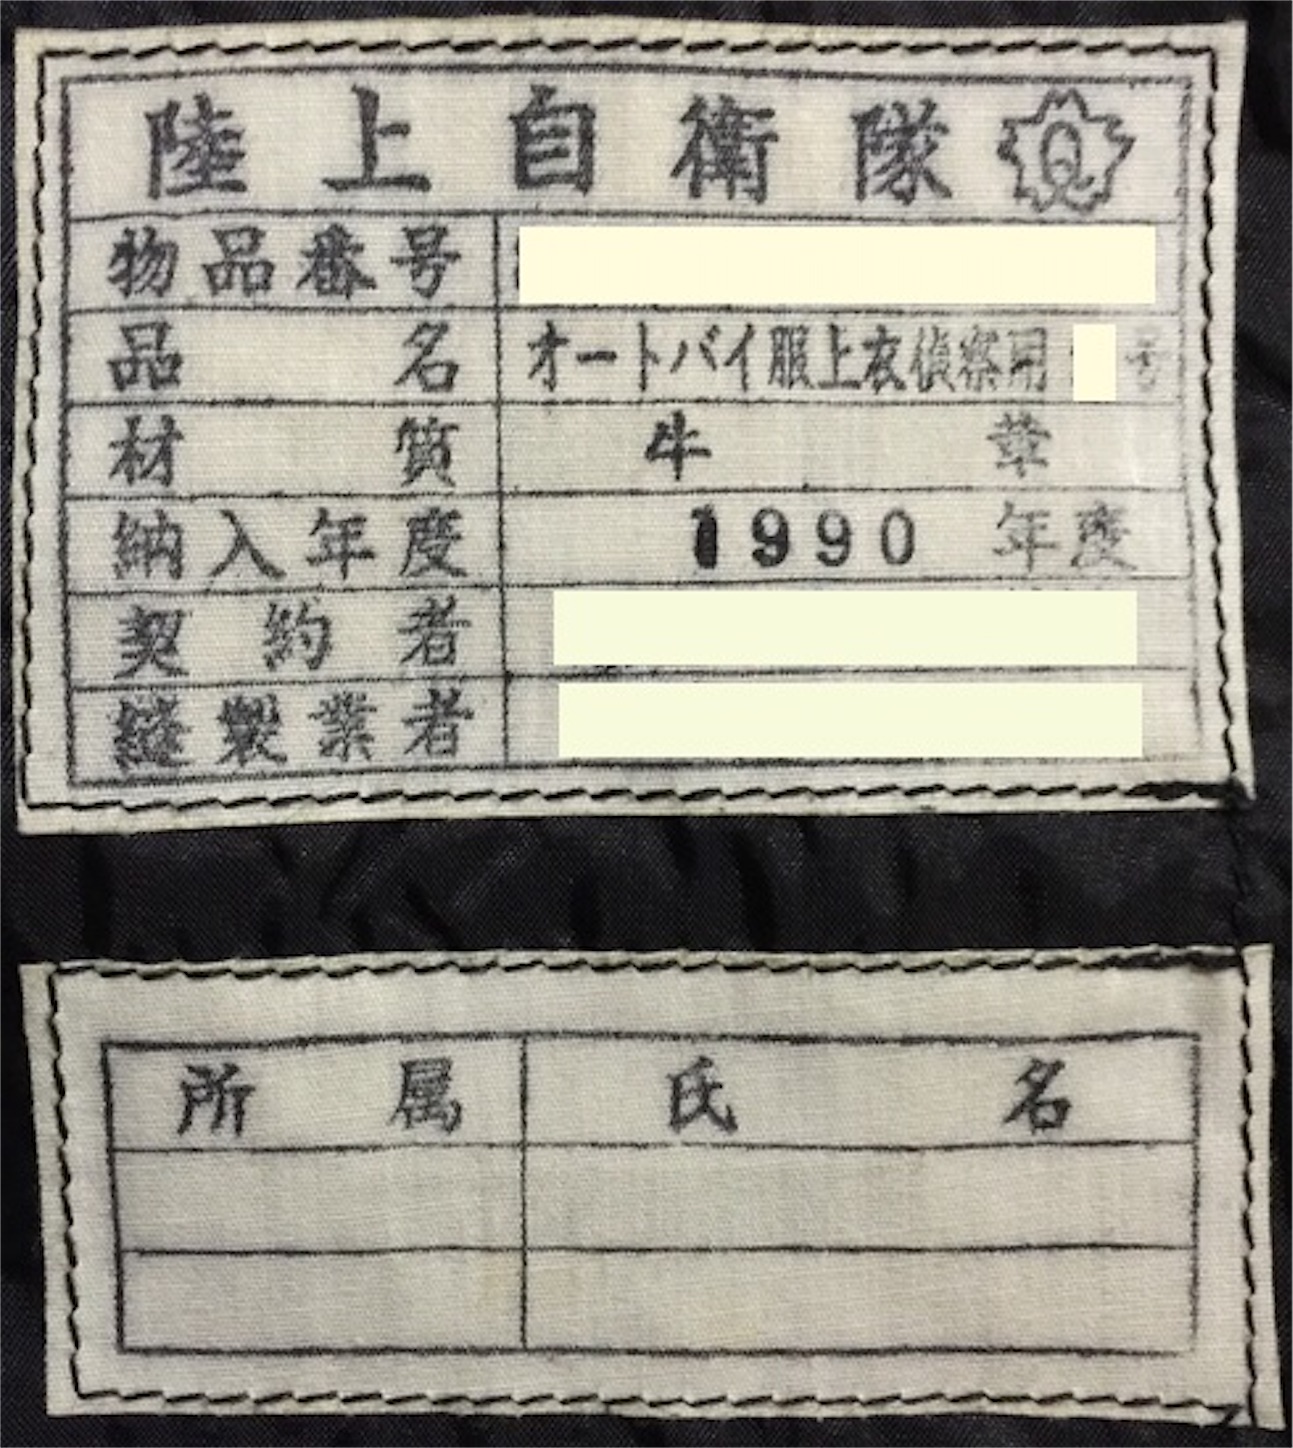 陸上自衛隊
物品番号
品名 オートバイ服上衣偵察用 号
材質 牛革
納入年度 1990 年度
契約者
縫製業者
所属 氏名